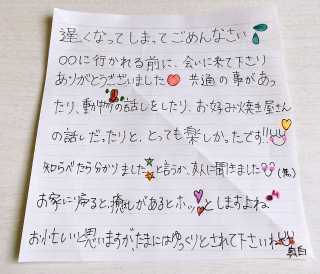 遅くなってしまってごめんなさい
○○に行かれる前に、会いに来て下さり
ありがとうございました 共通の事があっ
たり、動物の話しをしたり、お好み焼き屋さん
の話しだったりと、とっても楽しかったです!!
知らべたら分かりました と言うか、友人に聞きました(笑)
お家に帰ると、癒しがあるとホッ としますよね
お忙しいと思いますが、たまにはゆっくりとされて下さいね
真白